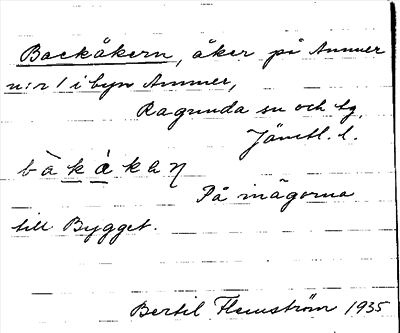 Backåkern, åker på Ammer
n:r 1 i byn Ammer,
Ragunda sn och tg,
Jämtl. l.
bàkàkaꞃ
På inägorna
till Bygget.
Bertil Flemström 1935